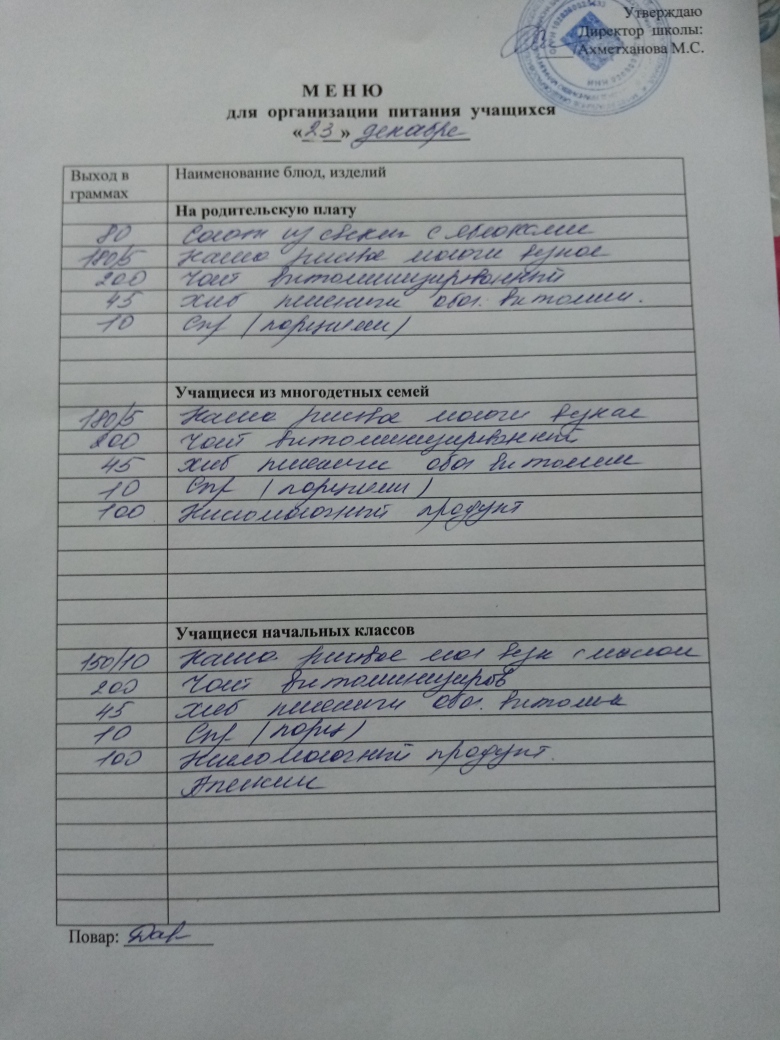 Утверждаю
Директор школы:
Ахметханова М.С.
МЕНЮ
для организации питания учащихся
«23» декабре
Выход в граммах Наименование блюд, изделий
На родительскую плату
80 Салат из свеклы с яблоками
180/5 Каша рисовая молочн вязкая
200 Чай витаминизированный
45 Хлеб пшеничн обог. витамин.
10 Сыр (порциями)
Учащиеся из многодетных семей
180/5 Каша рисовая молочн вязкая
200 Чай витаминизированный
45 Хлеб пшеничн обог витамин
10 Сыр (порциями)
100 Кисломолочный продукт
Учащиеся начальных классов
150/10 Каша рисовая мол вязк с маслом
200 Чай витаминизиров
45 Хлеб пшеничн обог. витамин
10 Сыр (порц)
100 Кисломолочный продукт.
Апельсин
Повар: